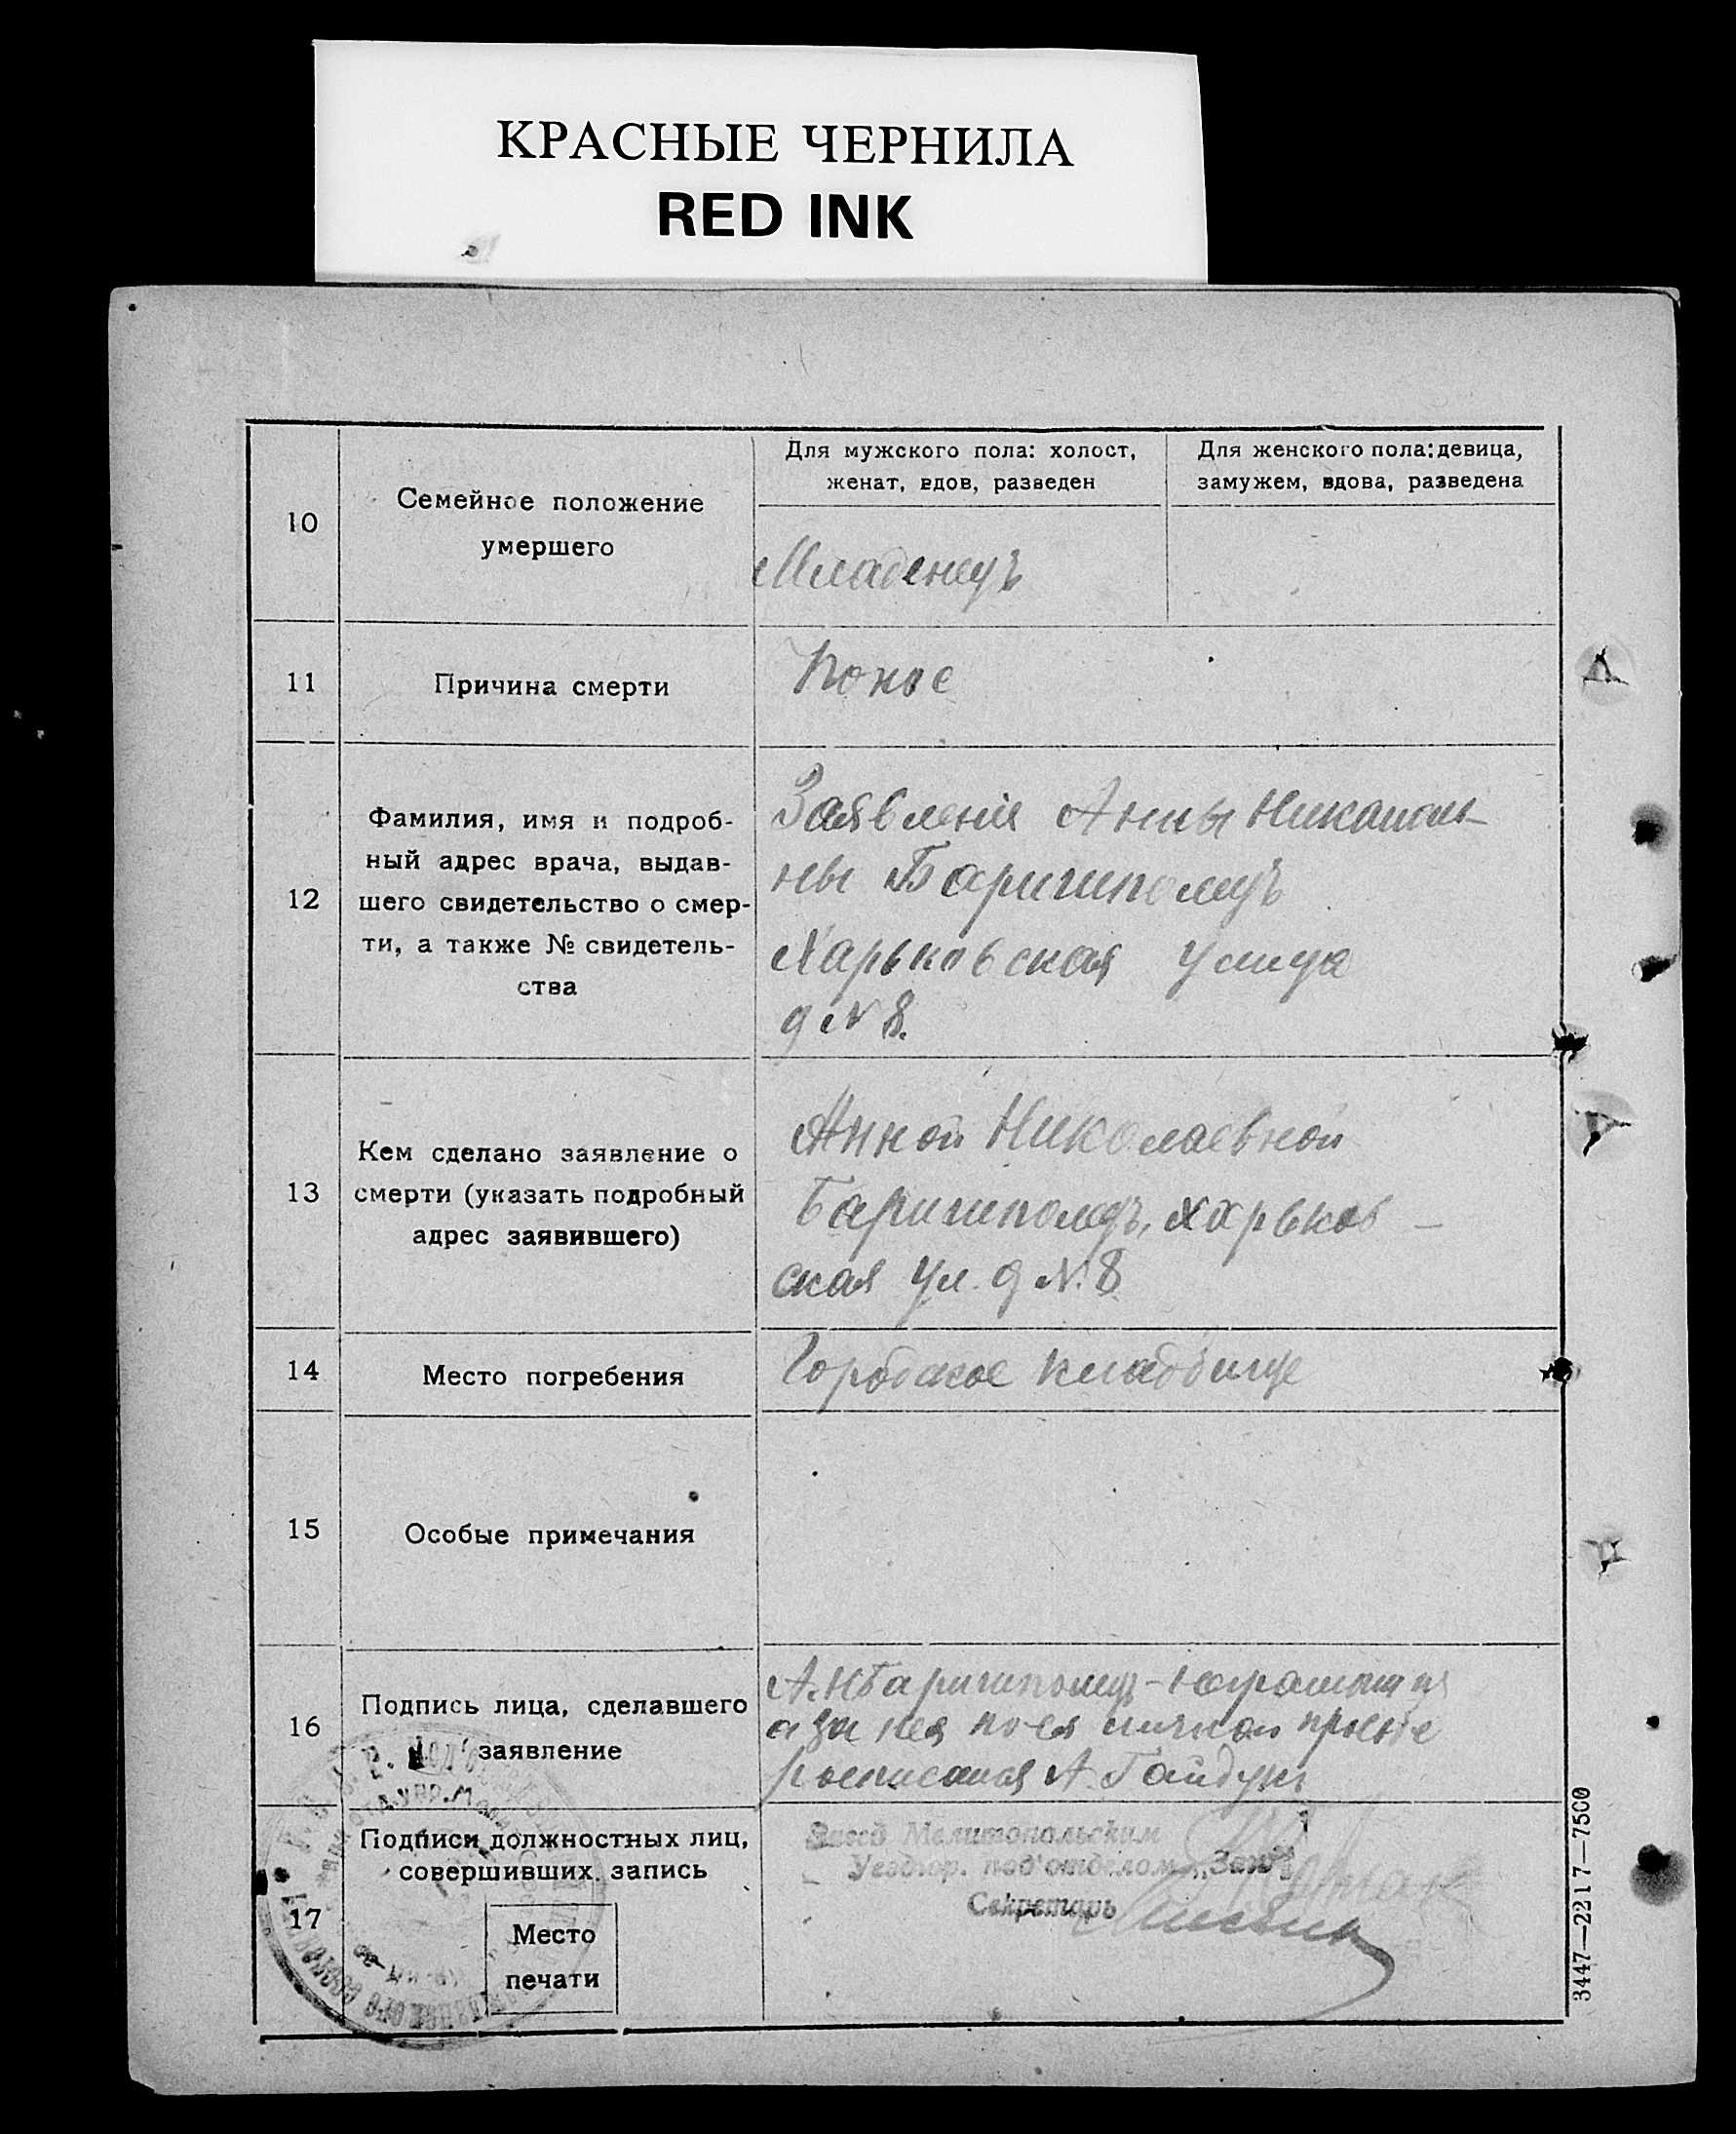 КРАСНЫЕ ЧЕРНИЛА
RED INK
10
Семейное положение
умершего
Для мужского пола: холост,
женат, вдов, разведен
Для женского пола: девица,
замужем, вдова, разведена
Младенецъ
11
Причина смерти
Понос
12
Фамилия, имя и подроб-
ный адрес врача, выдав-
шего свидетельство о смер-
ти, а также № свидетель-
ства
Заявленія Анны
ны Баришполецъ
Харьковская Улица
д № 8.
13
Кем сделано заявление о
смерти (указать подробный
адрес заявившего)
Анной Николаевной
Баришполецъ, Харьков-
ская Ул. д № 8
14
Место погребения
Городское кладбище
15
Особые примечания
16
Подпись лица, сделавшего
заявление
А.Н Баришполецъ -
а за нея по ея личной прозбе
А. Гайдукъ
17
Подписи должностных лиц,
совершивших запись
Место
печати
Завед Мелитопольским
Уездгор. под'отделом „Загс"
Секретарь
3447—2217—7500